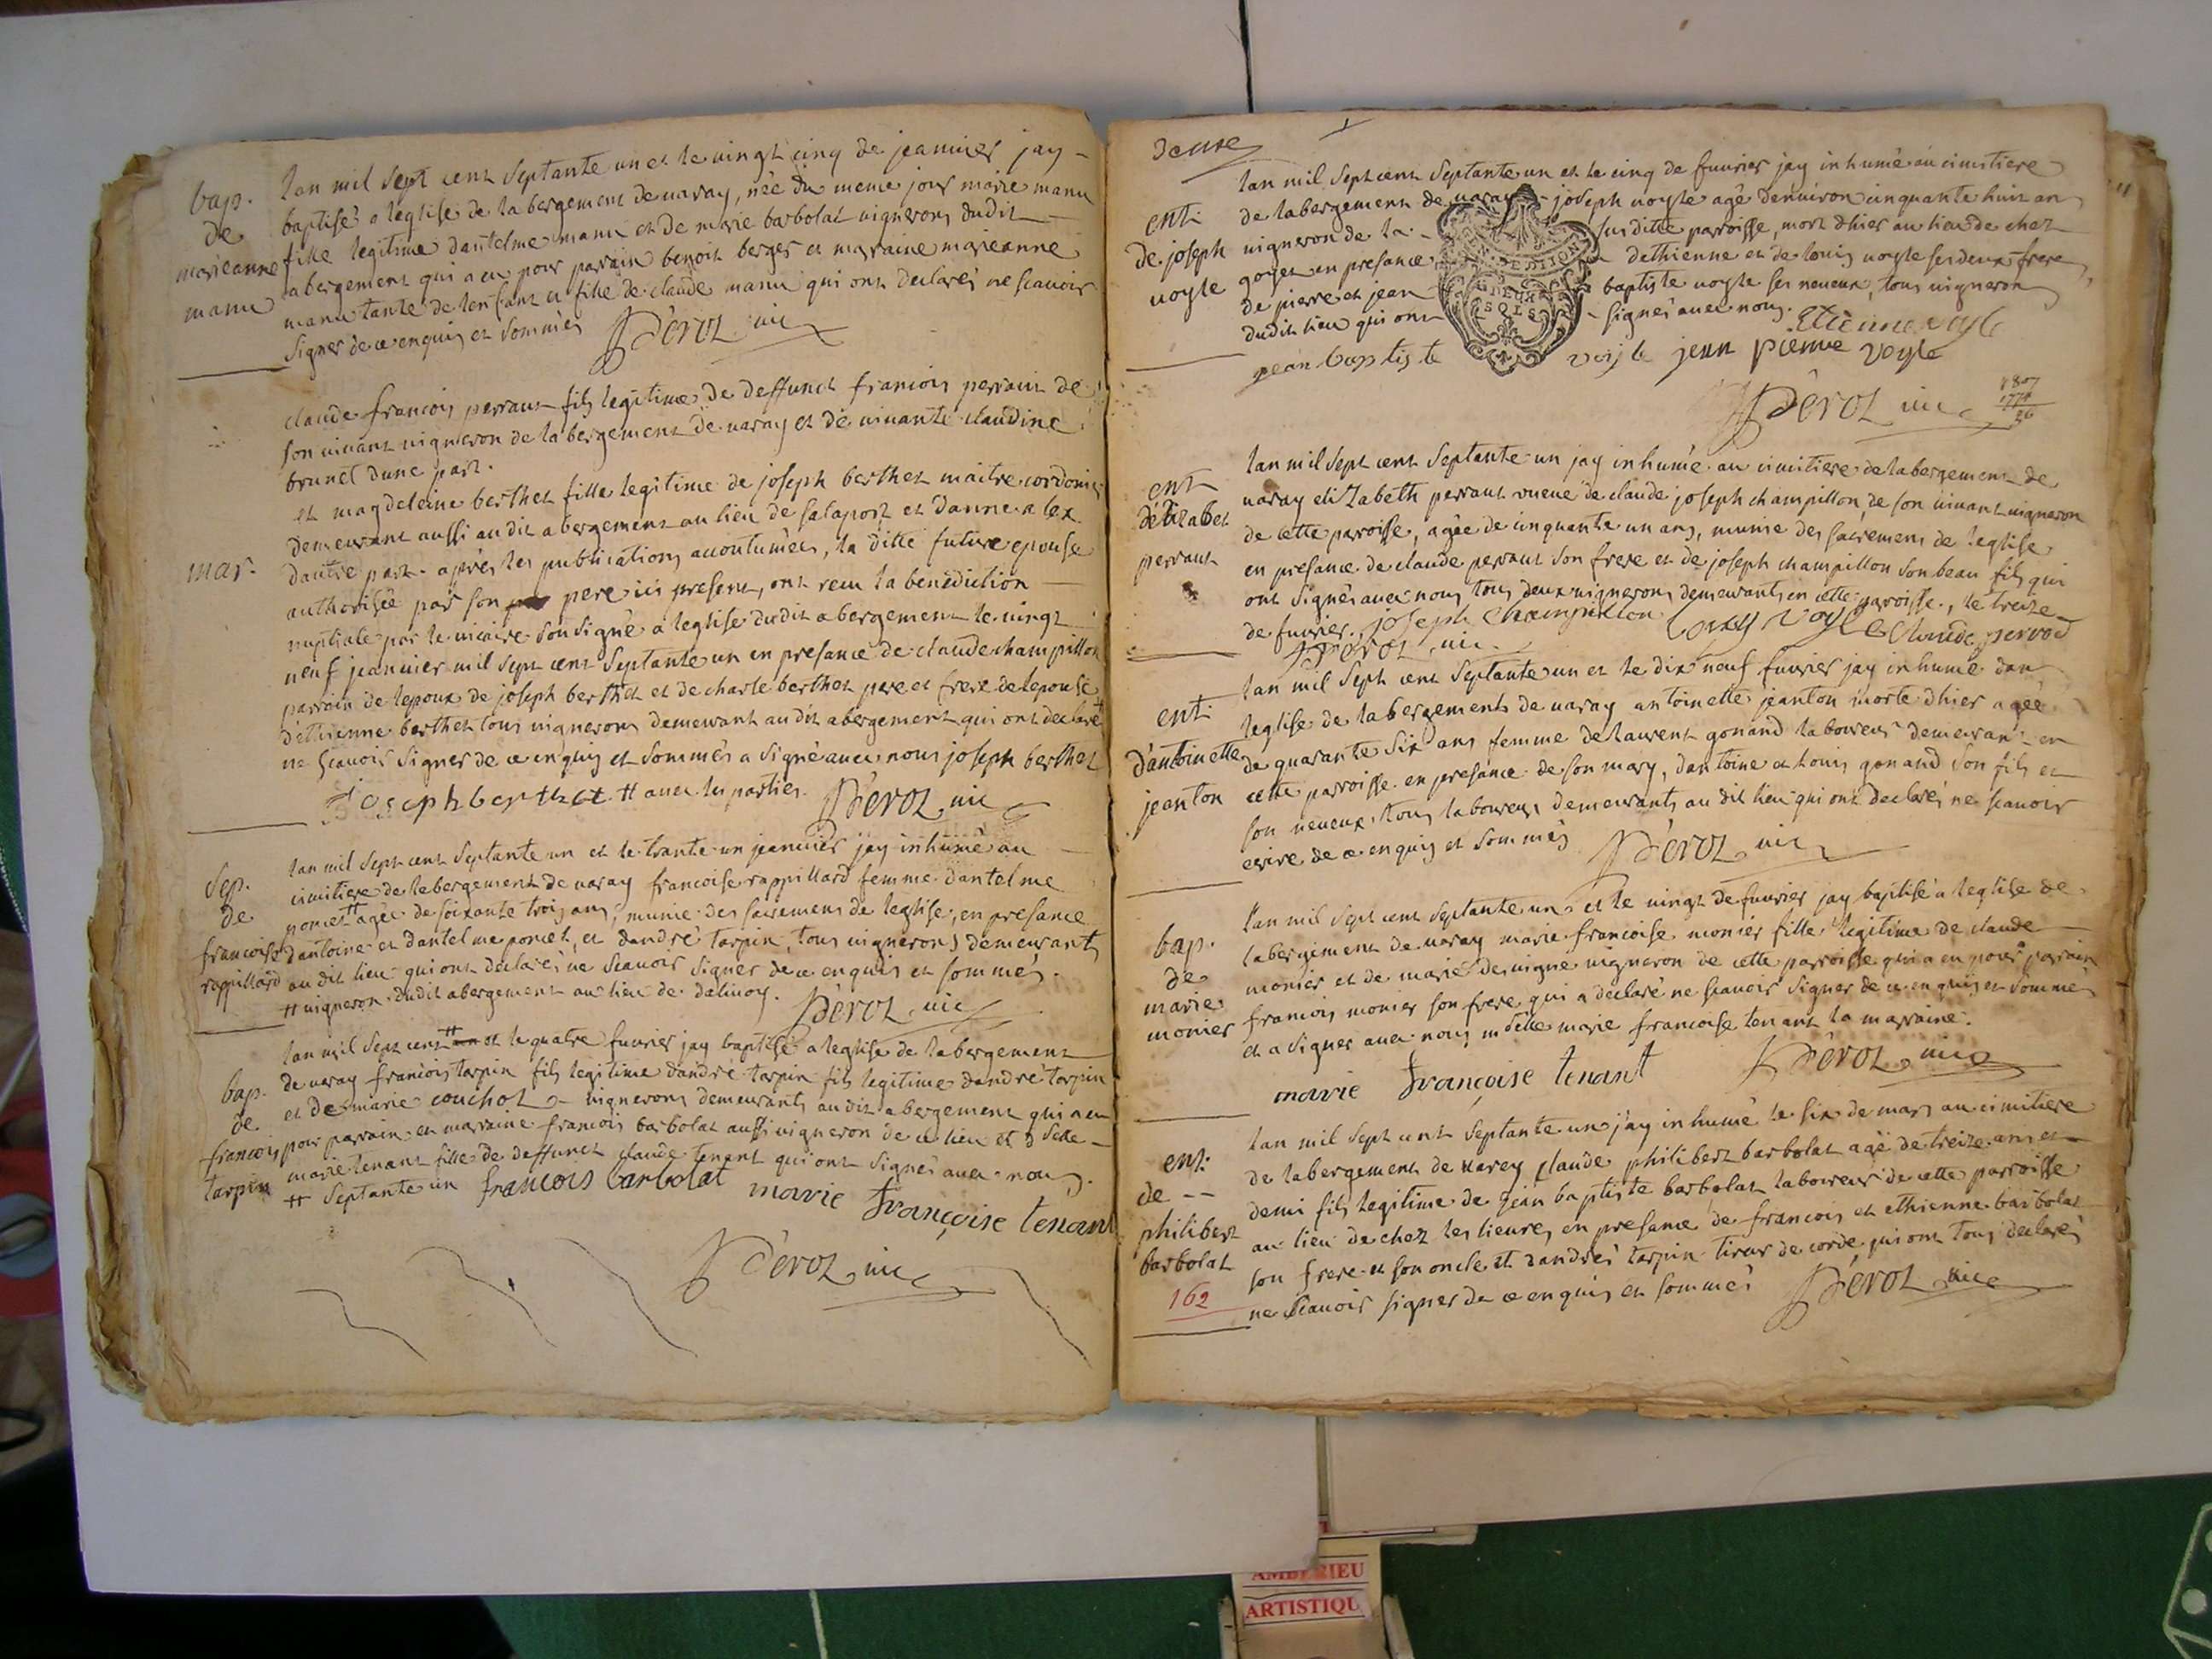 bap.
de
marieanne
manu
lan mil sept cent septante un et le vingt cinq de jeanvier jay
baptisé a leglise de labergement de varay, née du meme jour marie manu
fille legitime dantelme manu et de marie barbolat vignerons dudit
abergement qui a eu pour parrain benoit berger et marraine marieanne
manu tante de lenfant et fille de claude manu qui ont declarés ne scavoir
signer de ce enquis et sommés
Pérol vic
mar.
claude francois perraut fils legitime de deffunct francois perraut de
son vivant vigneron de labergement de varay et de vivante claudine
brunet dune part.
et magdeleine berthet fille legitime de joseph berthet maitre cordonier
demeurant aussi audit abergement au lieu de salaport et danne
dautre part. aprés les publications accoutumées, la ditte future epouse
authorisée par son pere ici present, ont recu la benediction
nuptiale par le vicaire sousigné a leglise dudit abergement le vingt
neuf jeanvier mil sept cent septante un en presance de claude champillon
parrain de lepoux de joseph berthet et de charle berthet pere et frere de lepouse
déthienne berthet tous vignerons demeurant audit abergement qui ont declaré
ne scavoir signer de ce enquis et sommés a signé avec nous joseph berthet
Joseph berthet # avec les parties. Pérol vic
sep.
de
francoise
rappillard
lan mil sept cent septante un et le trante un jeanvier jay inhumé au
cimitiere de labergement de varay francoise rappillard femme dantelme
poncet # agée de soixante trois ans, munie des sacremens de leglise, en presance
dantoine et dantelme poncet, et dandré tarpin, tous vignerons demeurants
au dit lieu qui ont declarés ne scavoir signer de ce enquis et sommés.
# vigneron dudit abergement au lieu de dalivoy. Pérol vic
bap.
de
francois
tarpin
lan mil sept cent # et le quatre fuvrier jay baptisé a leglise de labergement
de varay francois tarpin fils legitime dandré tarpin fils legitime dandré tarpin
et de marie couchot vignerons demeurants audit abergement qui a eu
pour parrain et marraine francois barbolat aussi vigneron de ce lieu et dselle
marie tenant fille de deffunct claude tenant qui ont signés avec nous.
# septante un francois barbolat marie françoise tenant
Pérol vic
ent:
de joseph
voyle
lan mil sept cent septante un et le cinq de fuvrier jay inhumé au cimitiere
de labergement de varay joseph voyle agé denviron cinquante huit an
vigneron de la susditte parroisse, mort dhier au lieu de chez
goyet en presance dethienne et de louis voyle ses deux frere
de pierre et jean baptiste voyle ses neveux, tous vigneron
dudit lieu qui ont signés avec nous. Etienne voyle
jean baptiste voyle jean pierre voyle
Pérol vic
1807
ent
délizabet
perraut
lan mil sept cent septante un jay inhumé au cimitiere de labergement de
varay elizabeth perraut veuve de claude joseph champillon de son vivant vigneron
de cette parroisse, agée de cinquante un ans, munie des sacremens de leglise
en presance de claude perraut son frere et de joseph champillon son beau fils qui
ont signés avec nous tous deux vignerons demeurants en cette parroisse, le treize
de fuvrier. joseph champillon
Pérol vic
ent:
dantoinette
jeanton
lan mil sept cent septante un et le dix neuf fuvrier jay inhumé dan
leglise de labergement de varay antoinette jeanton morte dhier agée
de quarante six ans femme de laurent gonand laboureur demeurant en
cette parroisse en presance de son mary, dantoine et louis gonand son fils et
son neveux tous laboureurs demeurants au dit lieu qui ont declarés ne scavoir
ecrire de ce enquis et sommés Pérol vic
bap.
de
marie
monier
lan mil sept cent septante un et le vingt de fuvrier jay baptisé a leglise de
labergement de varay marie francoise monier fille legitime de claude
monier et de marie devigne vigneron de cette parroisse qui a eu pour parrain
francois monier son frere qui a declaré ne scavoir signer de ce enquis et sommé
et a signer avec nous mdelle marie francoise tenant la marraine.
marie françoise tenant Pérol vic
ent:
de --
philibert
barbolat
162
lan mil sept cent septante un jay inhumé le six de mars au cimitiere
de labergement de varey claude philibert barbolat agé de treize ans et
demi fils legitime de jean baptiste barbolat laboureur de cette parroisse
au lieu de chez les lieures, en presance de francois et ethienne barbolat
son frere et son oncle et dandrés tarpin tireur de corde qui ont tous declarés
ne scavoir signer de ce enquis et sommés Pérol vic
AMBERIEU
ARTISTIQU